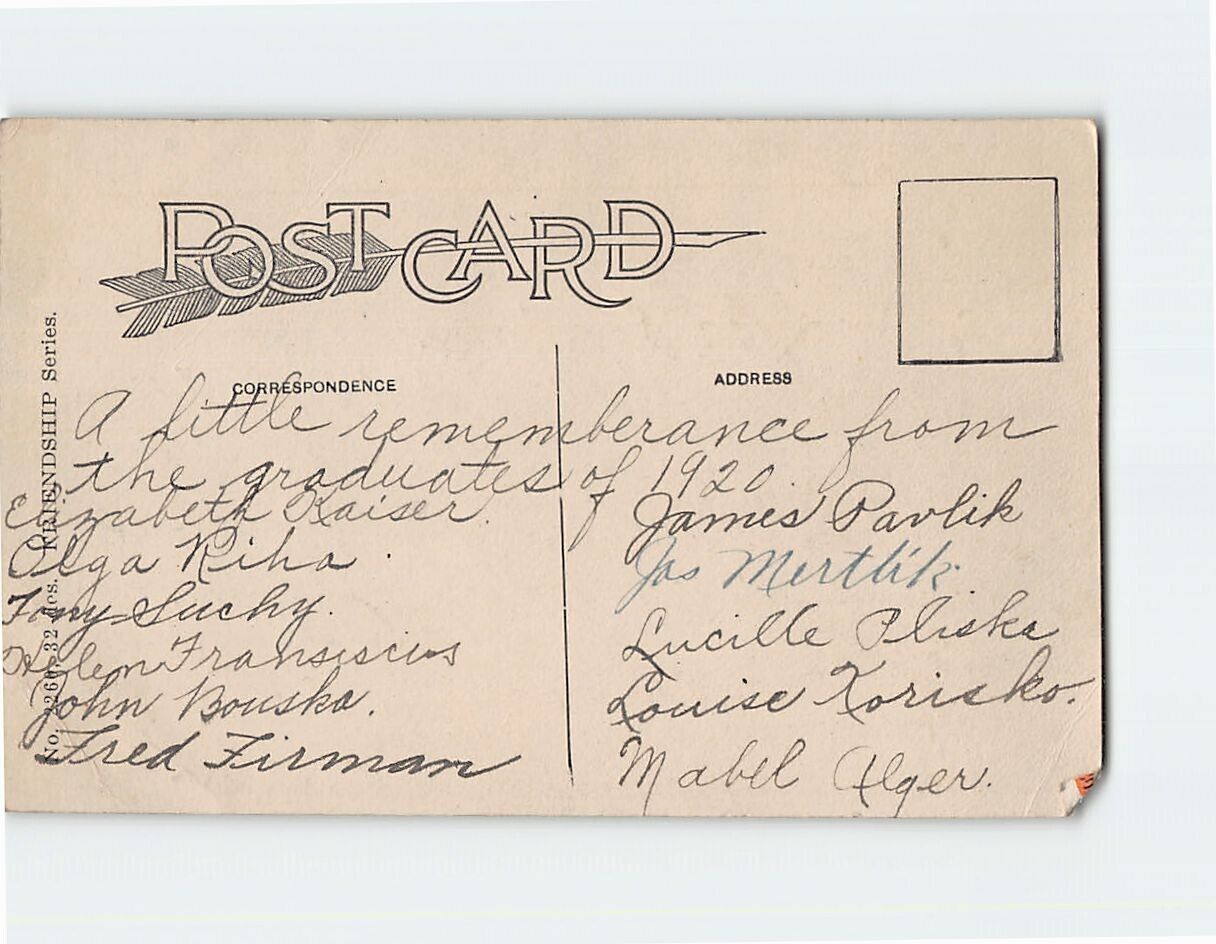 POST CARD
CORRESPONDENCE
ADDRESS
A little rememberance from
the graduates of 1920.
Elizabeth Kaiser.
Olga Riha.
Tony Suchy.
Helen Fransiscus
John Bouska.
Fred Firman
James Pavlik
Jas Mertlik.
Lucille Pliska
Louise Korisko.
Mabel Alger.
No. 2260. 32 des. FRIENDSHIP Series.